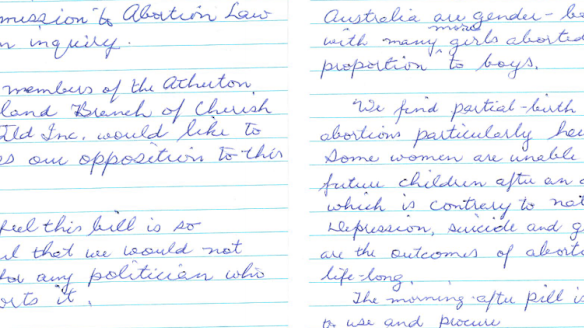 mission to Abortion Law
n inquiry.
members of the Atherton
land Branch of Cherish
Qld Inc. would like to
s our opposition to this
feel this bill is so
l that we would not
for any politician who
orts it.
Australia are gender-b
with many more girls aborted
proportion to boys.
We find partial-birth
abortions particularly
Some women are unable
future children after an a
which is contrary to
Depression, suicide and g
are the outcomes of aborti
life-long.
The morning-after pill is
to use and procure